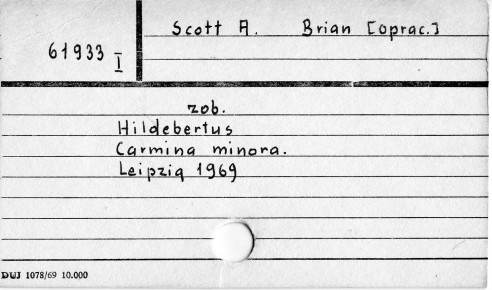 Scott A. Brian [oprac.]
61933 I
zob.
Hildebertus
Carmina minora.
Leipzig 1969
DUJ 1078/69 10.000